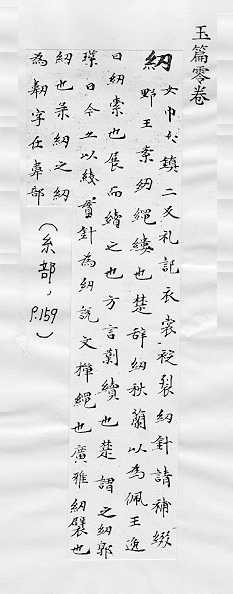 玉篇零卷
紉 女巾大鎮二反礼記衣裳裂紉針請補綴
野王案紉繩縷也楚辞紉秋蘭以為佩王逸
曰紉索也展而續之也方言剿續也楚謂之紉郭
璞曰今亦以綫貫針為紉說文繟繩也廣雅紉襞也
紉也羕紉之紉
為紉字在韋部
（糸部，P.159）